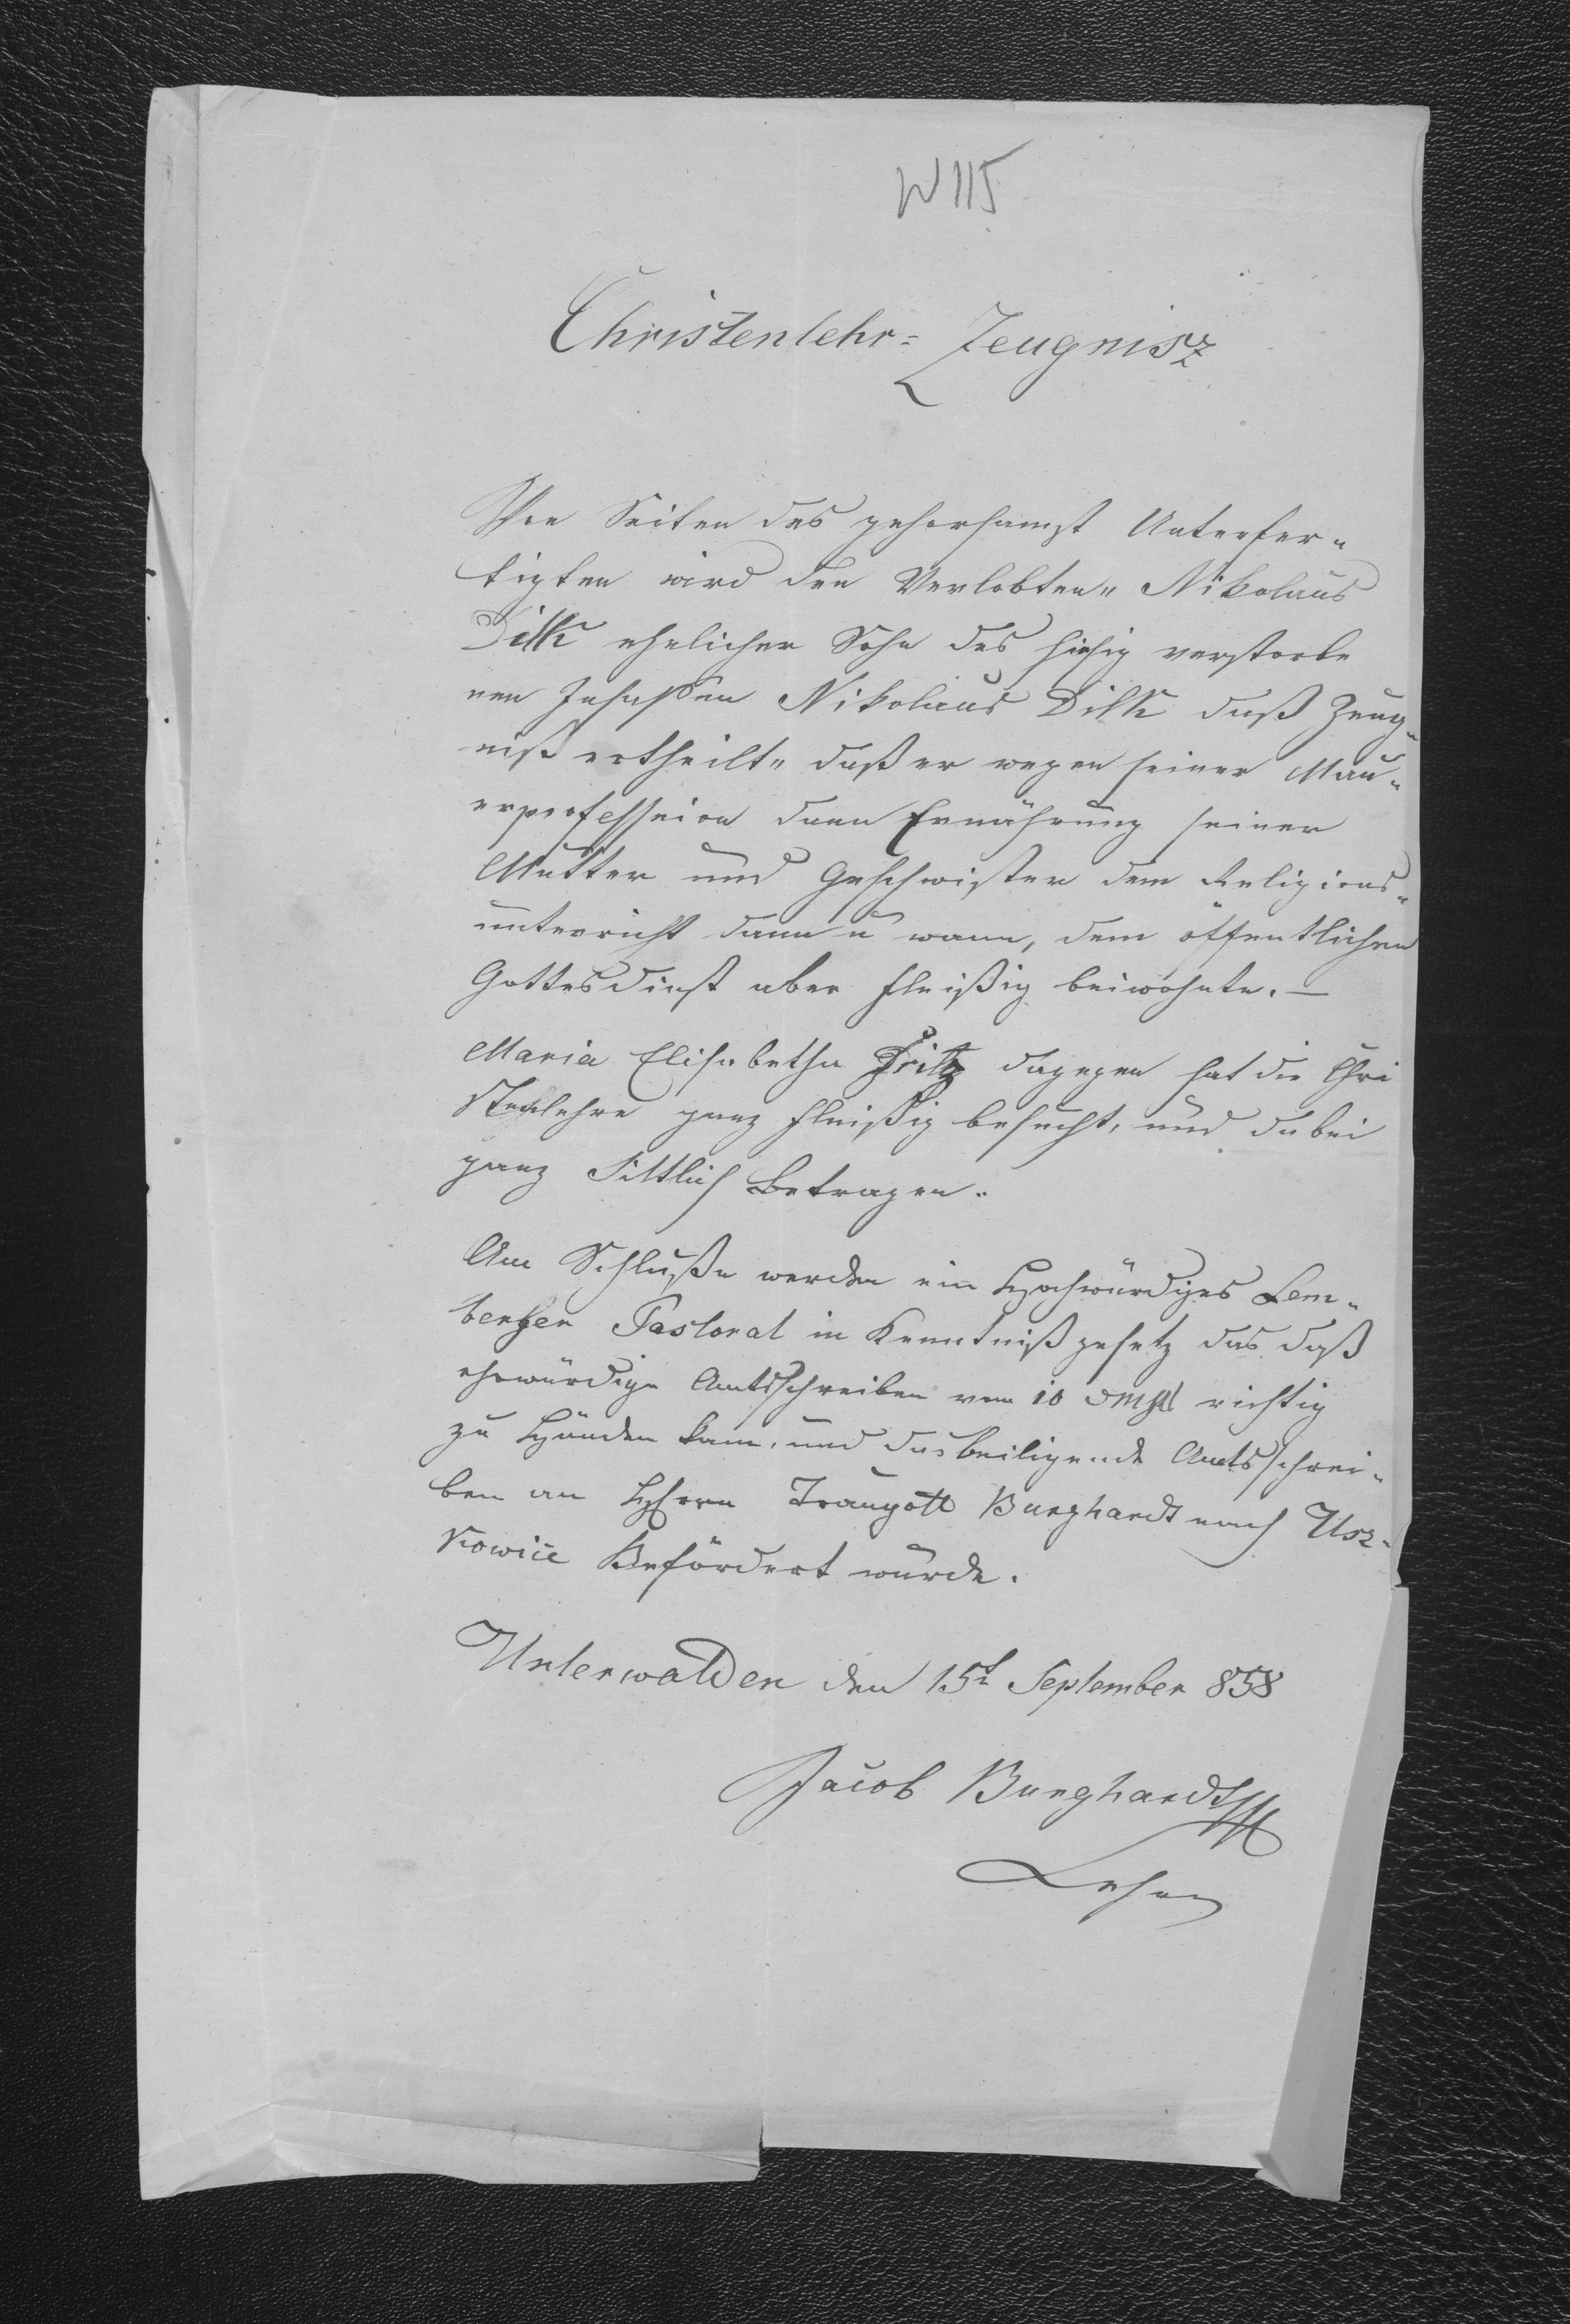 W 115
Christenlehr= Zeugnisz
Von Seiten des gehorsamst Unterfer„
tigten wird den Verlobten„ Nikolaus
Dilk ehelicher Sohn des hiesig verstorbe
nen Insaßen Nikolaus Dilk daß Zeug„
niß ertheilt„ daß er wegen seiner Mau„
erprofession dann Ernährung seiner
Mutter und Geschwister dem Religions„
unterricht dann u wann, dem öffentlichen
Gottesdinst aber fleißig beiwohnte. —
Maria Elisabetha Fritz dagegen hat die Chri
stenlehre ganz fleißig besucht, und dabei
ganz Sittlich Betragen.
Am Schluße werden ein Hochwürdiges Lem„
berger Pastorat in Kenntniß gesetz das daß
ehrwürdige Amtsschreiben vom 10 richtig
zu Händen kam, und das beiligende Amtsschrei„
ben an Herrn Traugott Burghardt nach Usz„
kowice Befördert wurde.
Unterwalden den 15t September 858
Jacob Burghardt
Lehrer